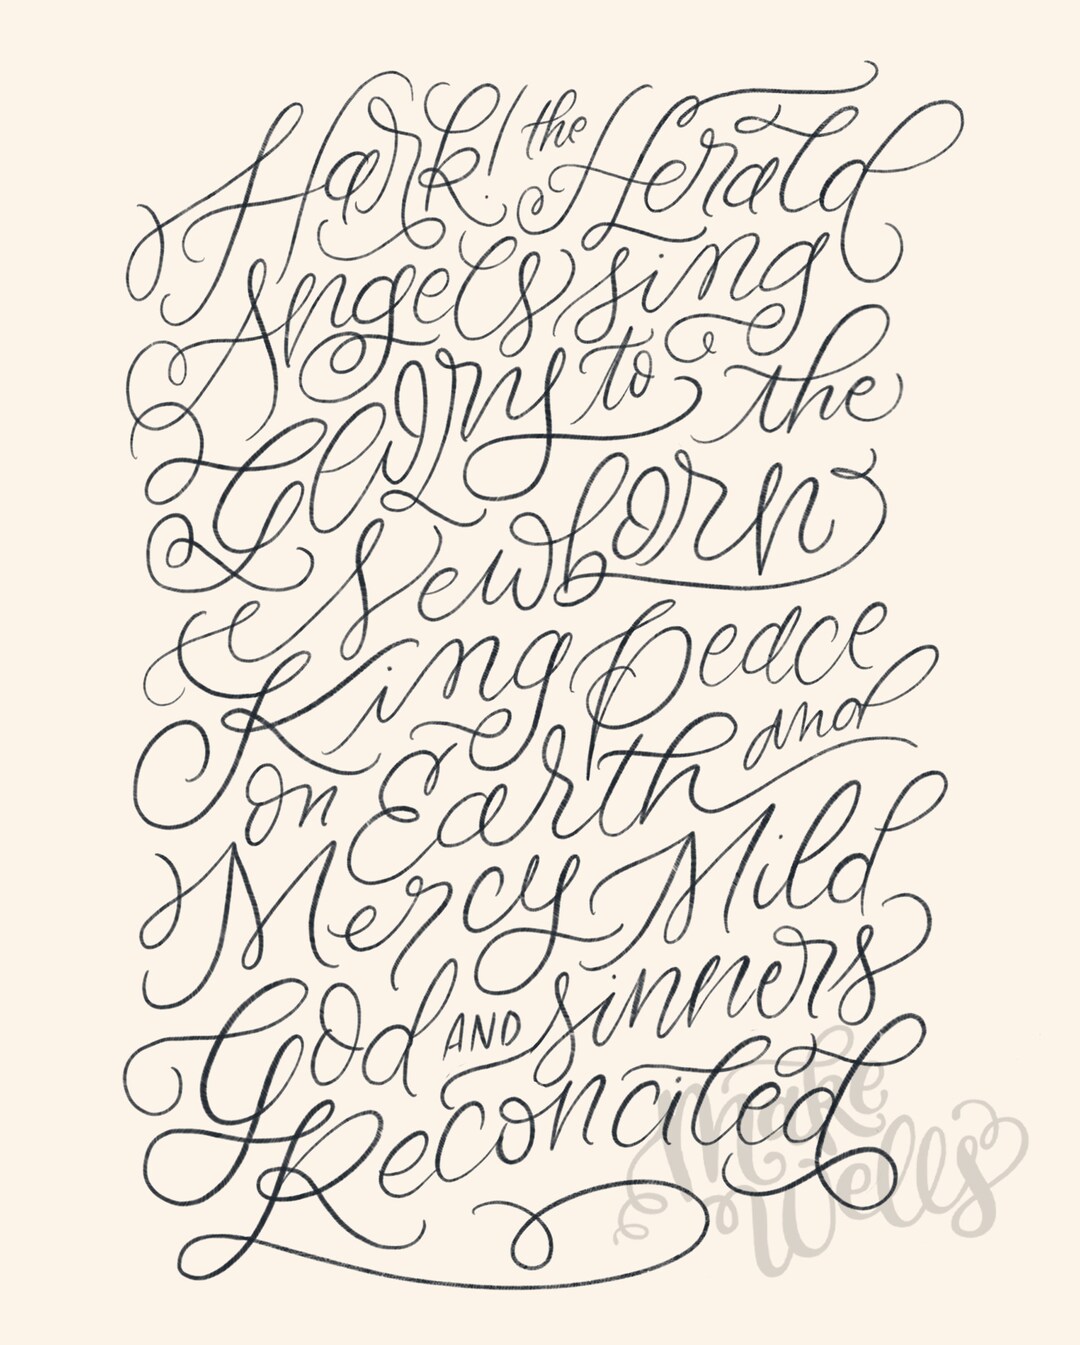 Hark! the Herald
Angels sing
Glory to the
Newborn
King Peace
on Earth and
Mercy Mild
God AND sinners
Reconciled
Make
Wells